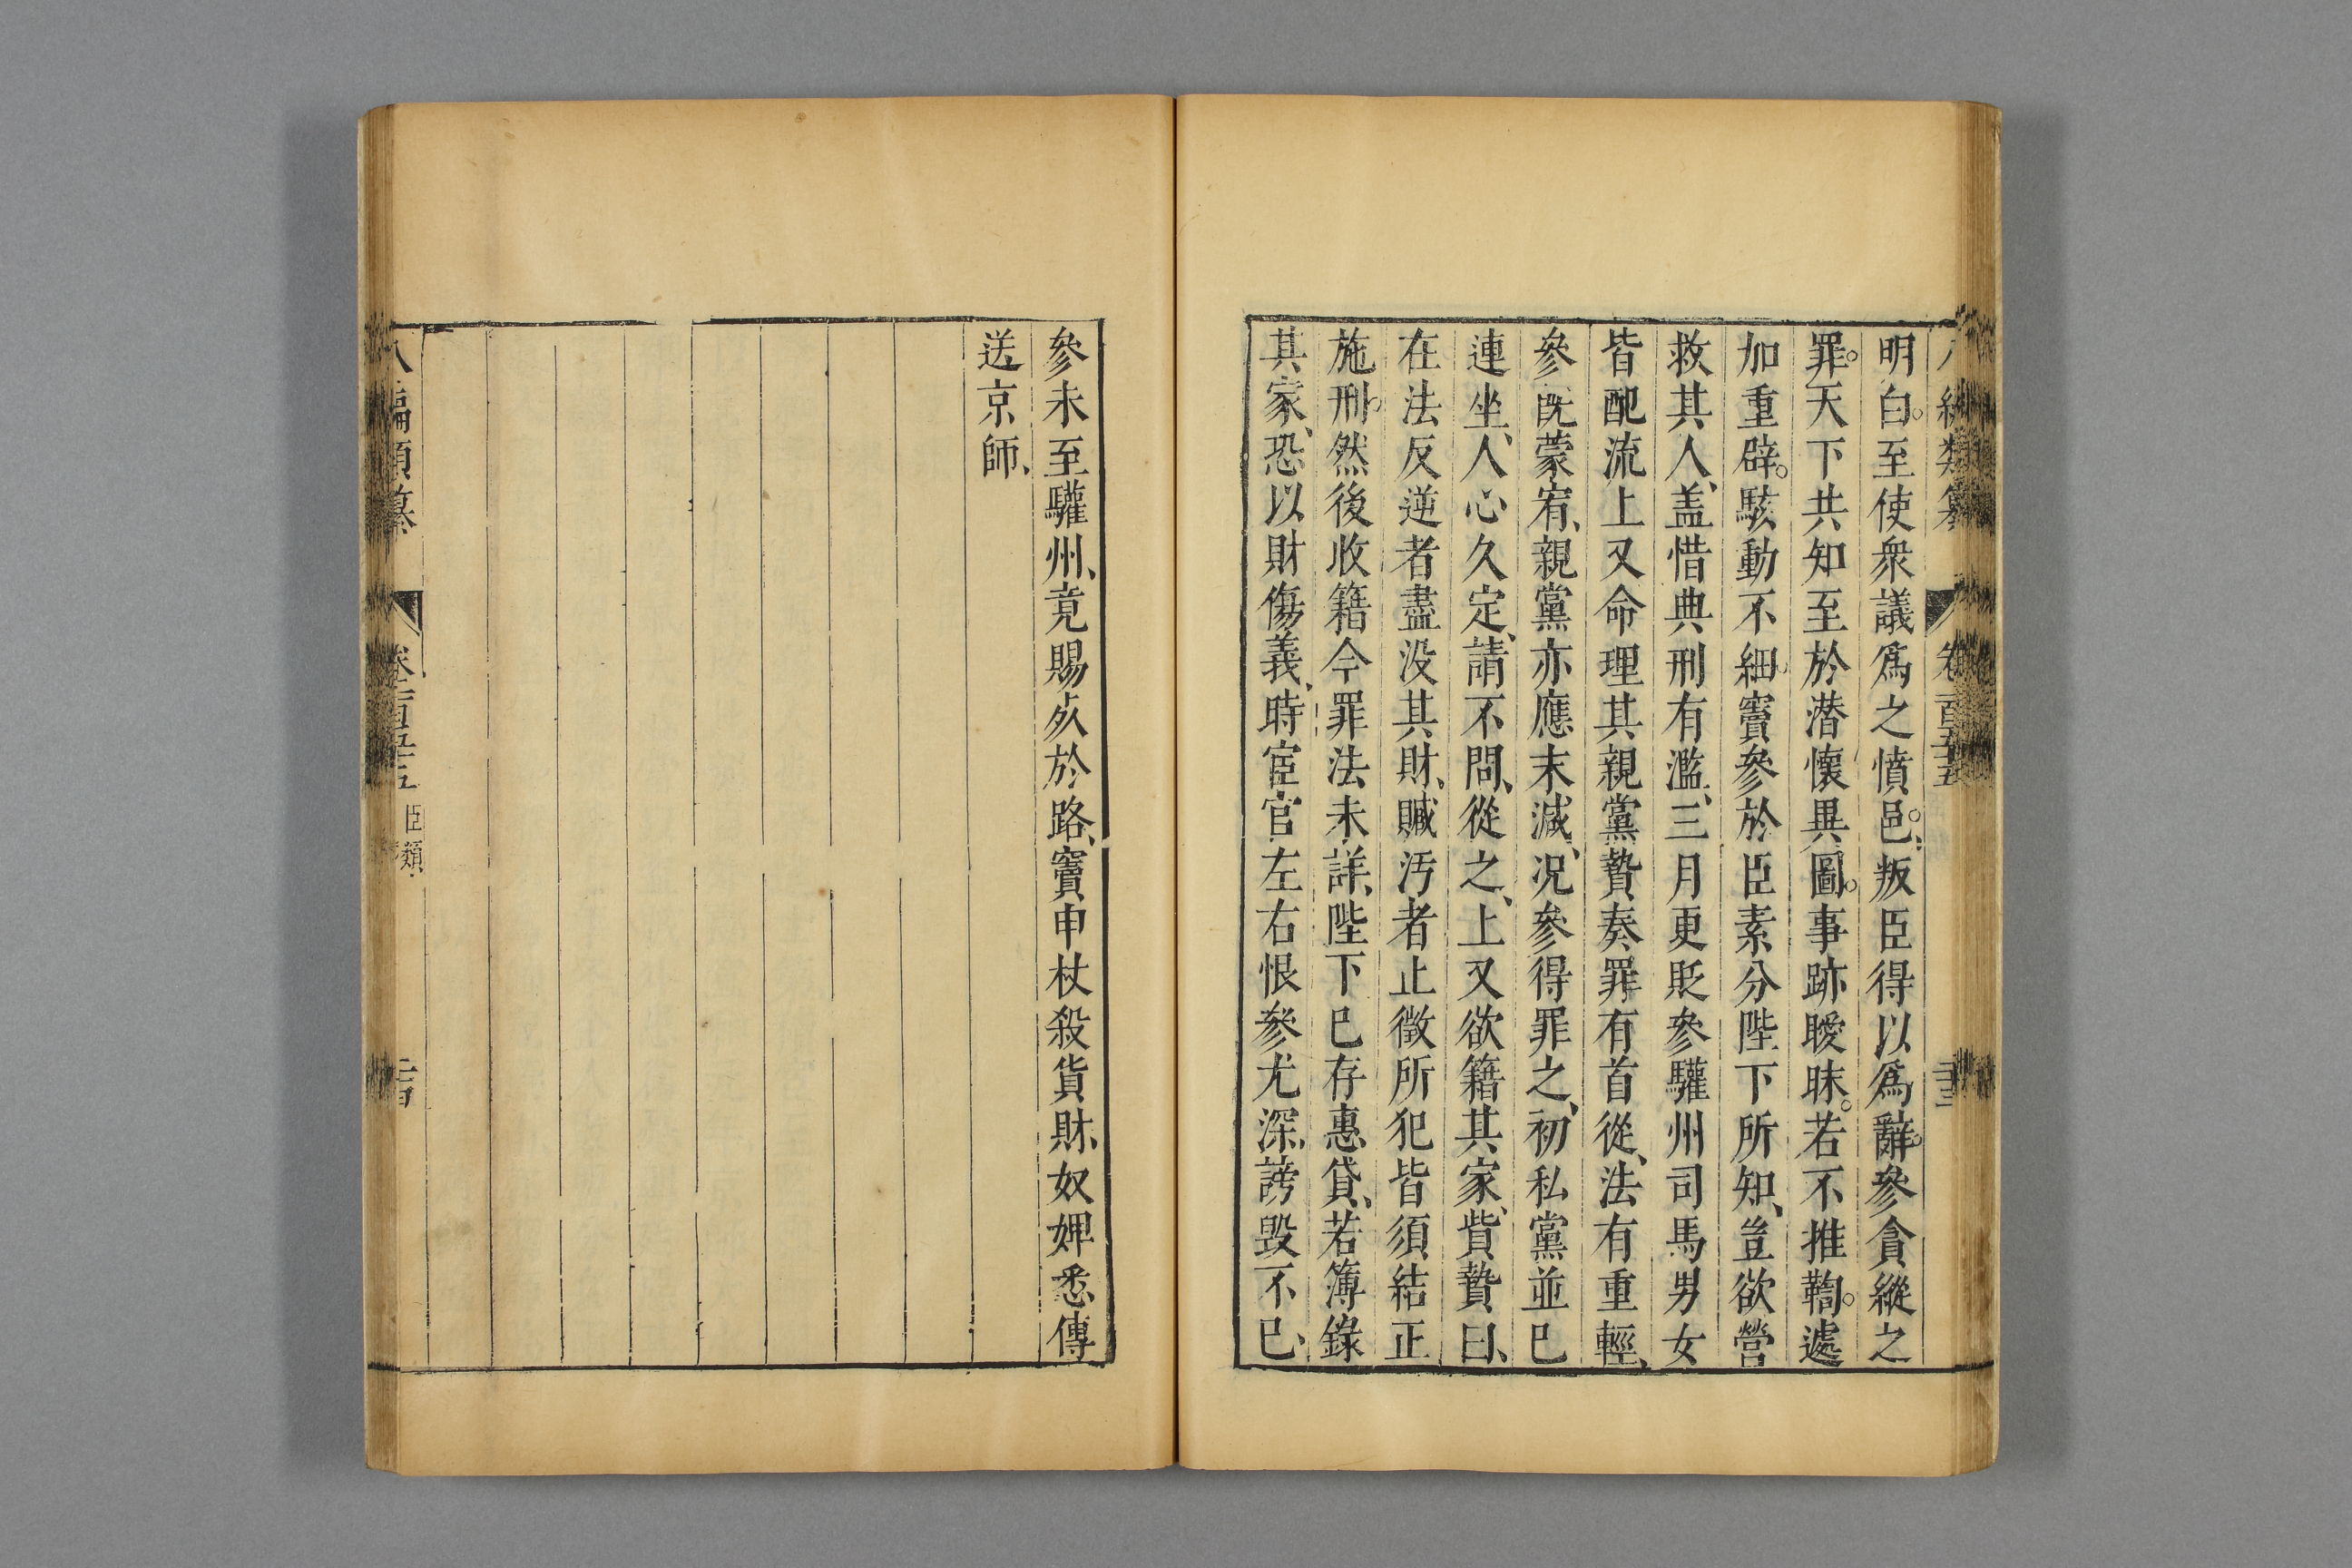 明白。至使衆議爲之憤邑。叛臣得以爲辭。參貪縱之
罪。天下共知至於潛懷異圖。事跡曖昧。若不推鞫。遽
加重辟。駭動不細。竇參於臣素分陛下所知、豈欲營
救其人、盖惜典刑有濫、三月更貶參驩州司馬男女
皆配流上又命理其親黨贄奏罪有首從、法有重輕、
參旣蒙宥、親黨亦應末減、况參得罪之、初私黨並巳
連坐、人心久定、請不問、從之、上又欲籍其家、貲贄曰、
在法反逆者盡没其財、贓汚者止徵所犯皆須結正
施刑。然後收籍今罪法未詳、陛下巳存惠貸、若簿錄
其家、恐以財傷義、時宦官左右恨參尤深、謗毁不巳、
參未至驩州、竟賜死於路、竇申杖殺貨財、奴婢悉傳
送京師、
類纂
卷百五十五
臣類